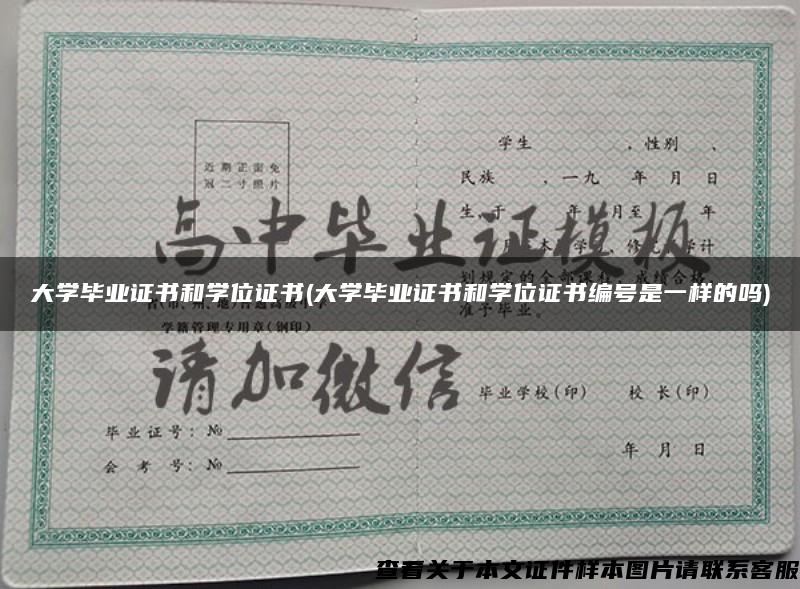 学生 ，性别 、
近期正面免
冠二寸照片
民族 ，一九 年 月 日
生，于 年 月至 年
高中毕业证模板
月 在本 学 、修 学计
划规定的全部课程，成绩合格
大学毕业证书和学位证书(大学毕业证书和学位证书编号是一样的吗)
准予毕业。
学籍管理专用章(钢印)
请加微信
毕业学校(印) 校 长(印)
毕业证号：№
年 月 日
会 考 号：№
查看关于本文证件样本图片请联系客服